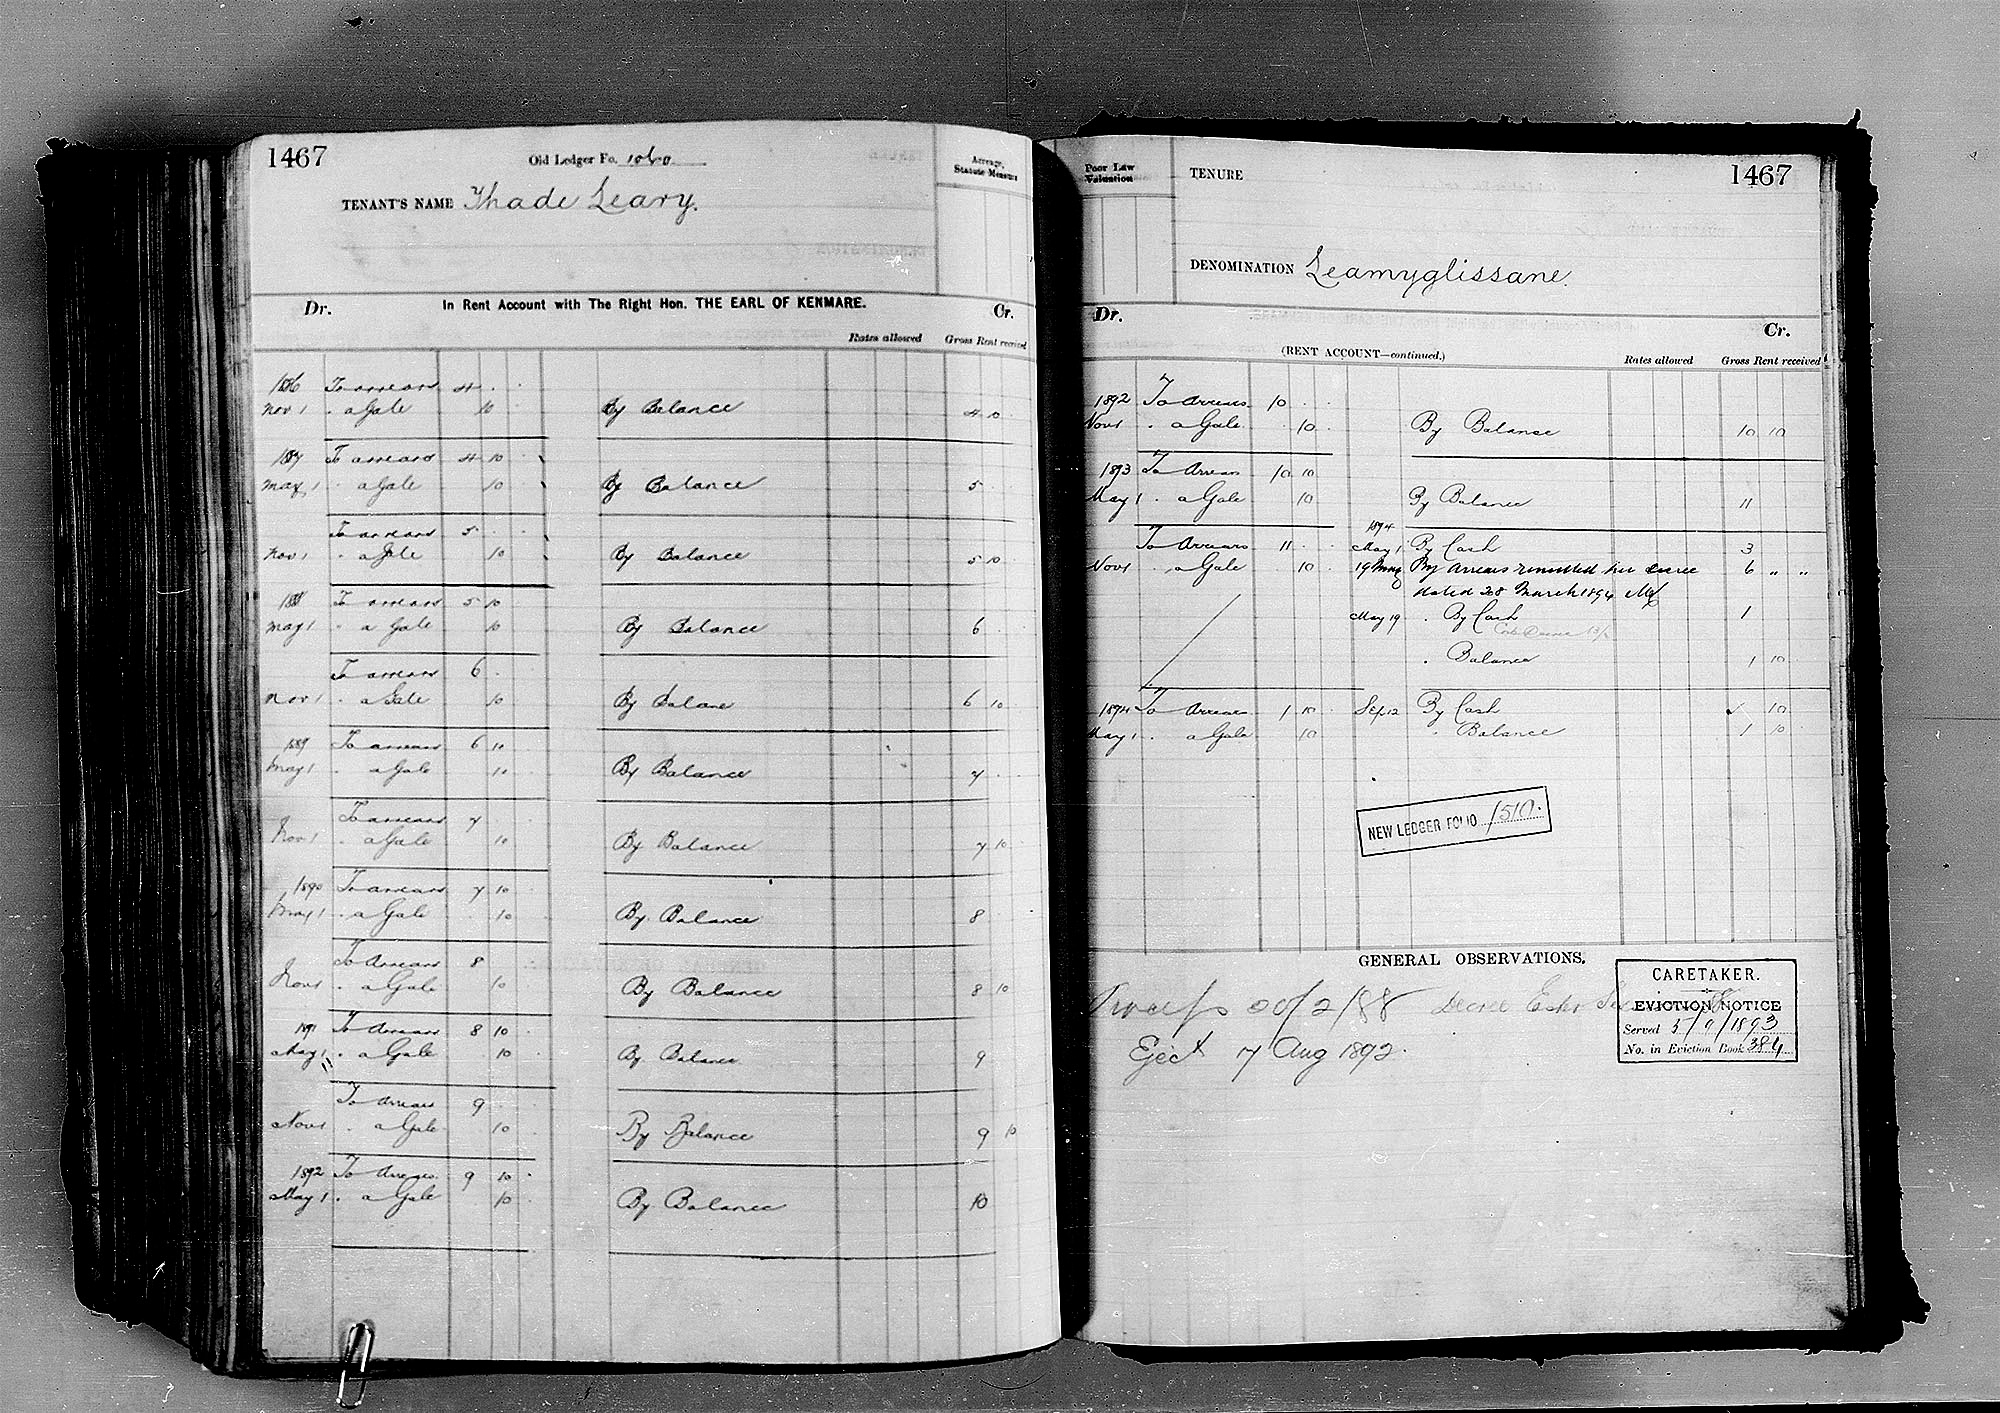 1467
Old Ledger Fo. 1060
Acreage, Statute Measure
TENANT'S NAME Thade Leary.
Dr. In Rent Account with The Right Hon. THE EARL OF KENMARE. Cr.
Rates allowed Gross Rent received
1886 To arrears 4 . .
Nov 1 . a Gale 10 By Balance 4 10
1887 To arrears 4 10 .
May 1 . a Gale 10 By Balance 5
To arrears 5 . .
Nov 1 . a Gale 10 By Balance 5 10
1888 To arrears 5 10
May 1 . a Gale 10 By Balance 6
To arrears 6 .
Nov 1 . a Gale 10 By Balance 6 10
1889 To arrears 6 10
May 1 . a Gale 10 By Balance 7
To arrears 7 .
Nov 1 a Gale 10 By Balance 7 10
1890 To arrears 7 10
May 1 . a Gale 10 By Balance 8
To Arrears 8
Nov 1 . a Gale 10 By Balance 8 10
1891 To Arrears 8 10
May 1 . a Gale 10 By Balance 9
To Arrears 9
Nov 1 . a Gale 10 By Balance 9 10
1892 To Arrears 9 10
May 1 . a Gale 10 By Balance 10
Poor Law Valuation
TENURE
1467
DENOMINATION Leamyglissane.
Dr. Cr.
(RENT ACCOUNT—continued.) Rates allowed Gross Rent received
1892 To Arrears 10 . .
Nov 1 . a Gale . 10 By Balance 10 10
1893 To Arrears 10 10
May 1 . a Gale 10 By Balance 11
1894
To Arrears 11 . . May 1 By Cash 3
Nov 1 . a Gale . 10 . 19 May By Arrears remitted per decree 6 " "
dated 28 March 1894
May 19 . By Cash 1
. Balance 1 10
1894 To Arrears 1 10 Sep 12 By Cash ✓ 10
May 1 . a Gale 10 . Balance 1 10
NEW LEDGER FOLIO 1510.
GENERAL OBSERVATIONS.
20/2/88 Decree
Eject 7 Aug 1892.
CARETAKER.
EVICTION NOTICE
Served 5/9/1893
No. in Eviction Book 384